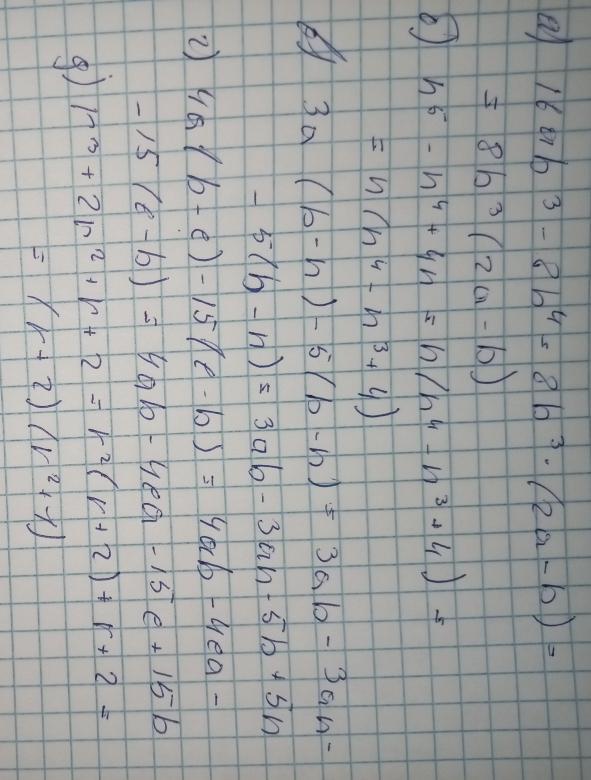 а) 16ab³ - 8b⁴ = 8b³ · (2a - b) =
= 8b³ (2a - b)
б) n⁵ - n⁴ + 4n = n(n⁴ - n³ + 4) =
= n(n⁴ - n³ + 4)
в) 3a (b - n) - 5(b - n) = 3ab - 3an -
- 5(b - n) = 3ab - 3an - 5b + 5n
г) 4a(b - e) - 15(e - b) = 4ab - 4ea -
- 15(e - b) = 4ab - 4ea - 15e + 15b
д) r³ + 2r² + r + 2 = r²(r + 2) + r + 2 =
= (r + 2)(r² + 1)